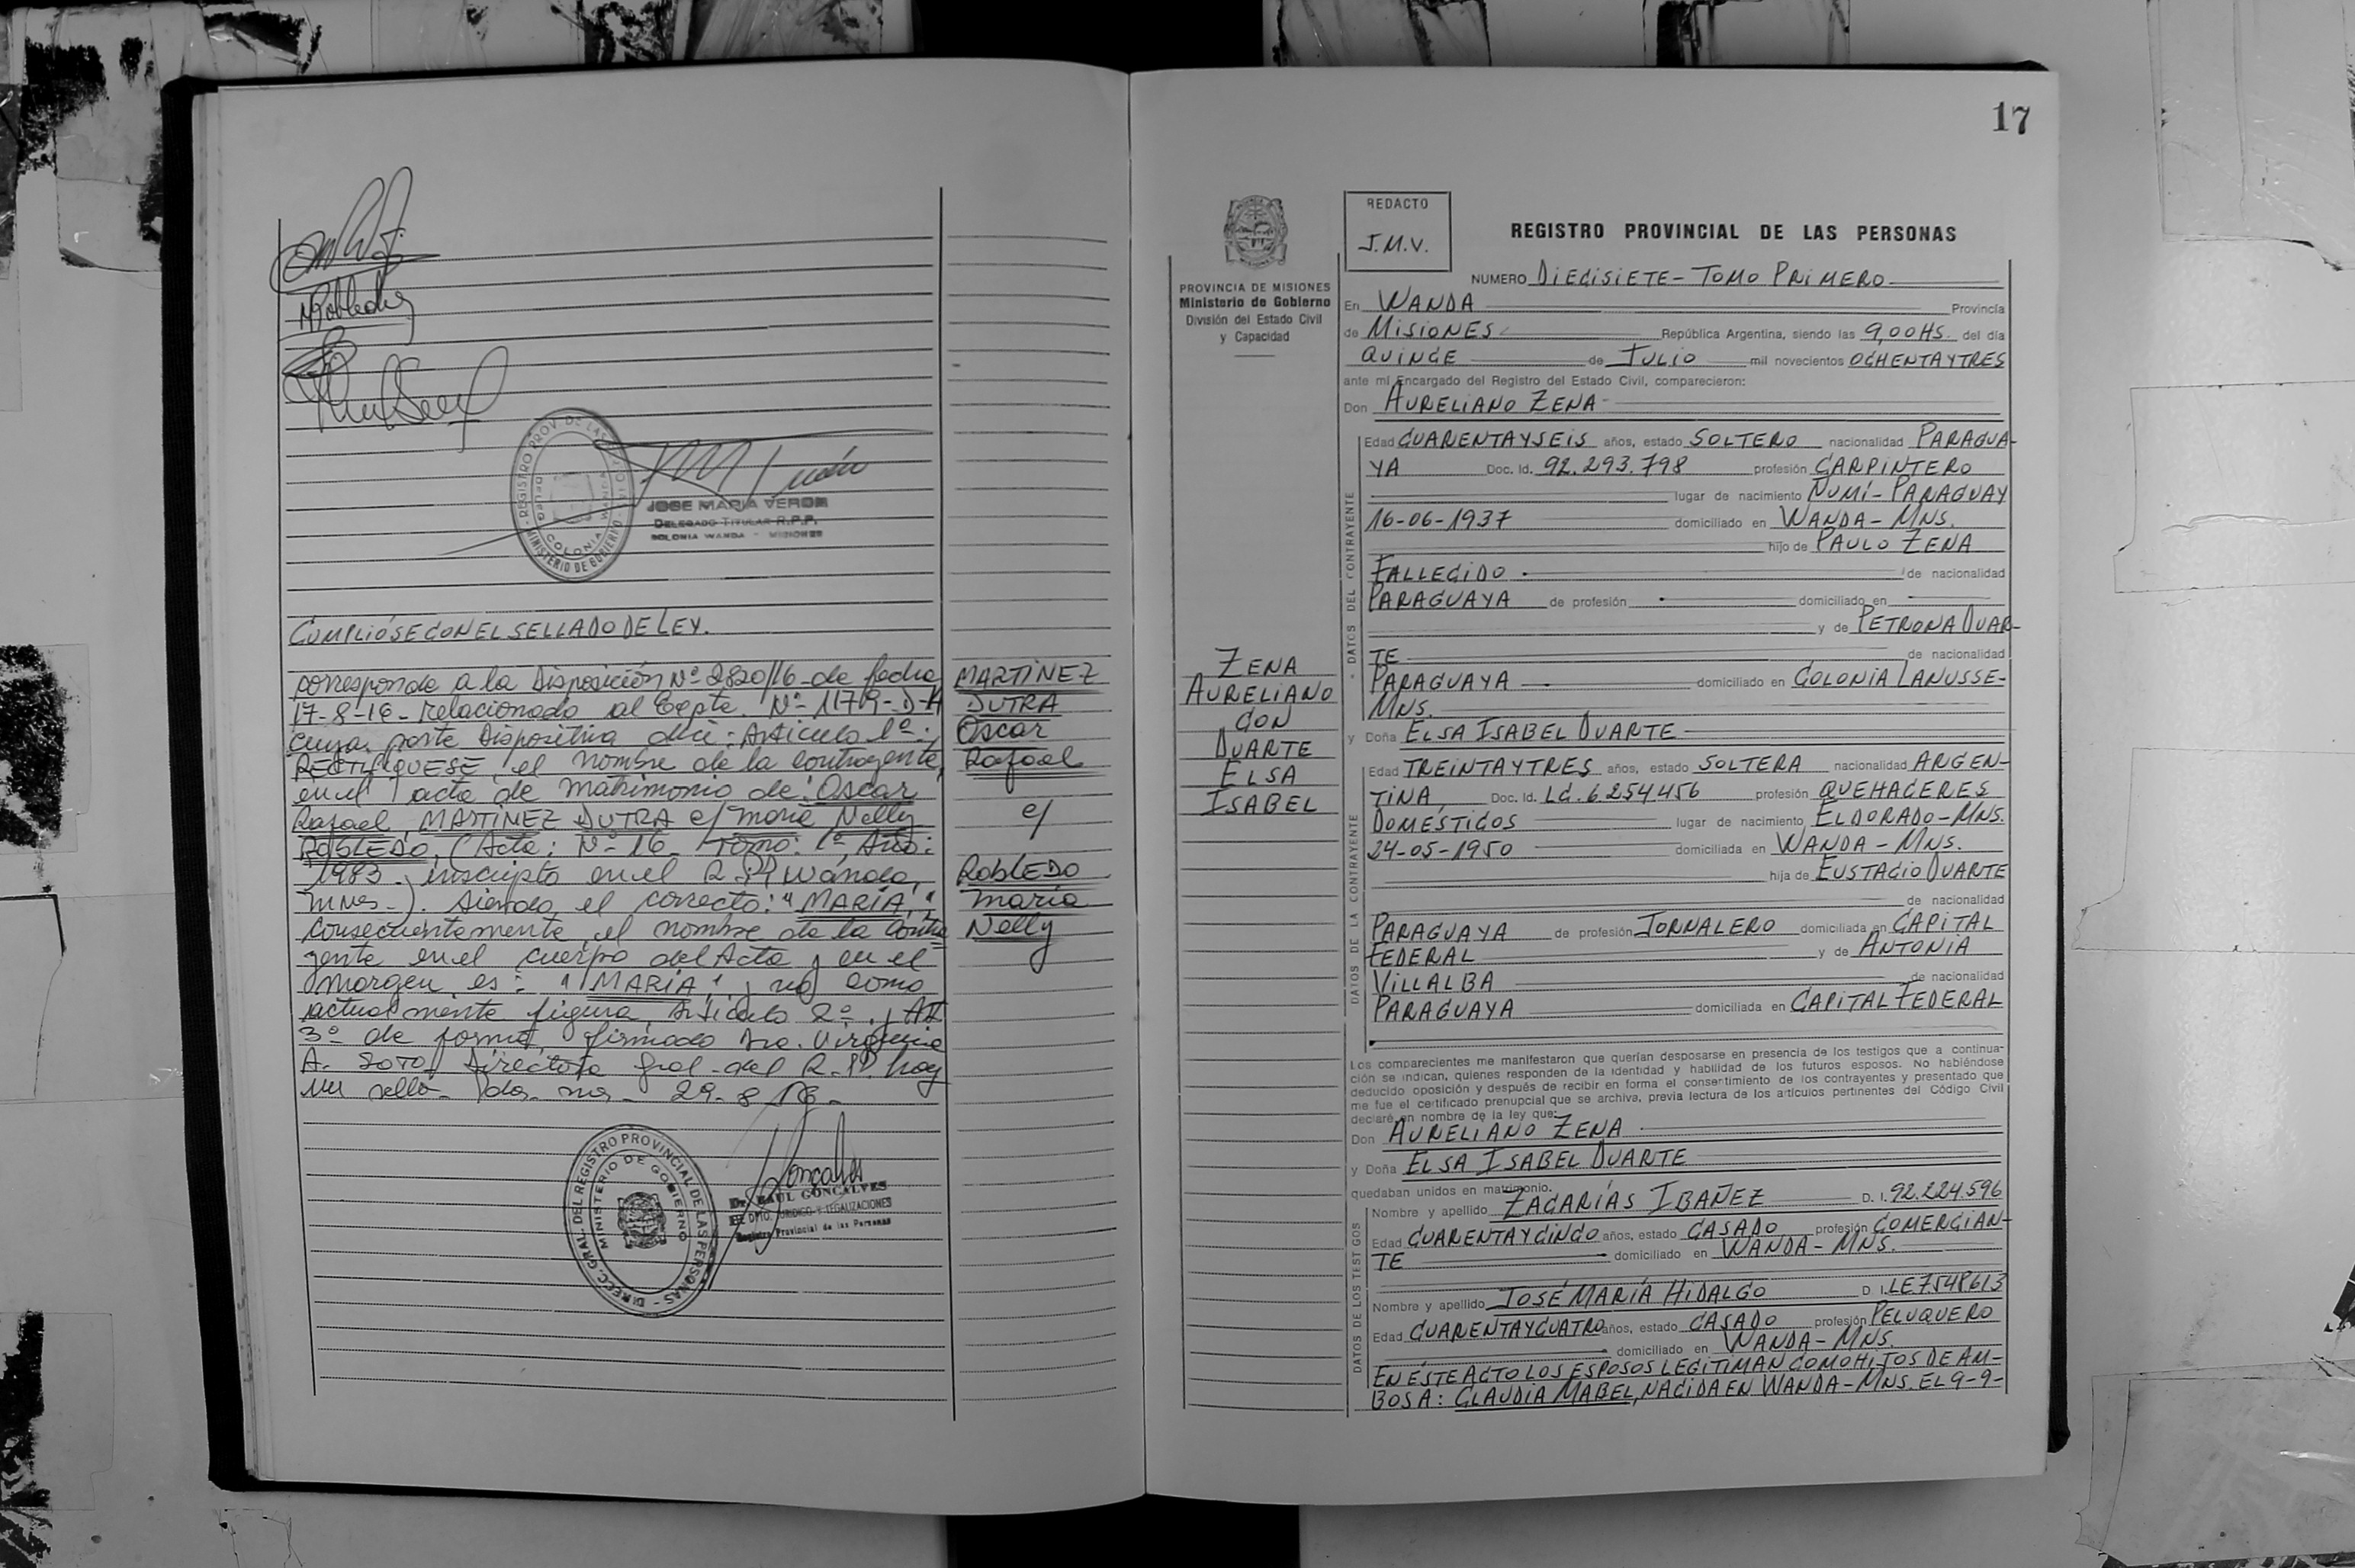 MRobledo
REGISTRO PROV. DE LAS
COLONIA WANDA
MINISTERIO DE GOBIERNO
JOSE MARIA VERON
DELEGADO TITULAR R.P.P.
COLONIA WANDA - MISIONES
CUMPLIÓSE CON EL SELLADO DE LEY.
corresponde a la Disposición Nº 2820/16 de fecha
17-8-16- relacionado al Expte. Nº 11709-D-H
cuya parte Dispositiva dice: Artículo 1º:
RECTIFIQUESE, el nombre de la contrayente,
en el acta de matrimonio de: Oscar
Rafael MARTINEZ DUTRA c/ Maria Nelly
ROBLEDO, (Acta: Nº 16 - Tomo: 1º, Año:
1983, inscripto en el R.P.P. Wanda,
Mnes-). siendo el correcto: "MARIA,"
Consecuentemente, el nombre de la contra
yente en el cuerpo del Acta y en el
margen es: "MARIA" y no como
actualmente figura, Artículo 2º y Art
3º de forma, firmado Dra. Virginia
A. SOTO Directora Gral. del R.P.P. hay
un sello- Pdas. mns- 29-8-16-
MARTINEZ
DUTRA
Oscar
Rafael
c/
ROBLEDO
Maria
Nelly
DIREC. GRAL. DEL REGISTRO PROVINCIAL DE LAS PERSONAS
MINISTERIO DE GOBIERNO
Goncalves
Dr. RAUL GONCALVES
DPTO. JURIDICO Y LEGALIZACIONES
Registro Provincial de las Personas
17
PROVINCIA DE MISIONES
Ministerio de Gobierno
División del Estado Civil
y Capacidad
ZENA
AURELIANO
CON
DUARTE
ELSA
ISABEL
REDACTO
J.M.V.
REGISTRO PROVINCIAL DE LAS PERSONAS
NUMERO DIECISIETE - TOMO PRIMERO
En WANDA Provincia
de MISIONES República Argentina, siendo las 9,00 HS. del día
QUINCE de JULIO mil novecientos OCHENTAYTRES
ante mí Encargado del Registro del Estado Civil, comparecieron:
Don AURELIANO ZENA
DATOS DEL CONTRAYENTE
Edad CUARENTAYSEIS años, estado SOLTERO nacionalidad PARAGUA-
YA Doc. Id. 92.293.798 profesión CARPINTERO
lugar de nacimiento ÑUMÍ - PARAGUAY
16-06-1937 domiciliado en WANDA - MNS.
hijo de PAULO ZENA
FALLECIDO de nacionalidad
PARAGUAYA de profesión domiciliado en
y de PETRONA DUAR-
TE de nacionalidad
PARAGUAYA domiciliado en COLONIA LANUSSE-
MNS.
y Doña ELSA ISABEL DUARTE
DATOS DE LA CONTRAYENTE
Edad TREINTAYTRES años, estado SOLTERA nacionalidad ARGEN-
TINA, Doc. Id. LC. 6.254.456 profesión QUEHACERES
DOMÉSTICOS lugar de nacimiento ELDORADO - MNS.
24-05-1950 domiciliada en WANDA - MNS.
hija de EUSTACIO DUARTE
de nacionalidad
PARAGUAYA de profesión JORNALERO domiciliada en CAPITAL
FEDERAL y de ANTONIA
VILLALBA de nacionalidad
PARAGUAYA domiciliada en CAPITAL FEDERAL
Los comparecientes me manifestaron que querían desposarse en presencia de los testigos que a continua-
ción se indican, quienes responden de la identidad y habilidad de los futuros esposos. No habiéndose
deducido oposición y después de recibir en forma el consentimiento de los contrayentes y presentado que
me fue el certificado prenupcial que se archiva, previa lectura de los artículos pertinentes del Código Civil
declaré en nombre de la ley que:
Don AURELIANO ZENA
y Doña ELSA ISABEL DUARTE
quedaban unidos en matrimonio.
DATOS DE LOS TESTIGOS
Nombre y apellido ZACARÍAS IBAÑEZ D. I. 92.224.596
Edad CUARENTAYCINCO años, estado CASADO profesión COMERCIAN-
TE domiciliado en WANDA - MNS.
Nombre y apellido JOSÉ MARÍA HIDALGO D I. LE 7548613
Edad CUARENTAYCUATRO años, estado CASADO profesión PELUQUERO
domiciliado en WANDA - MNS.
EN ÉSTE ACTO LOS ESPOSOS LEGITIMAN COMO HIJOS DE AM-
BOS A: CLAUDIA MABEL, NACIDA EN WANDA - MNS. EL 9-9-